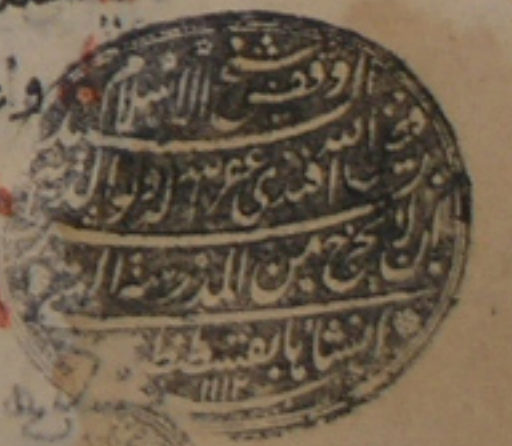 اوقف شيخ الاسلام
السيد فيض الله افندى غفر له ولوالديه
بشرط ان لا يخرج من المدرسة التى
انشاها بقسطنطنية
١١١٢